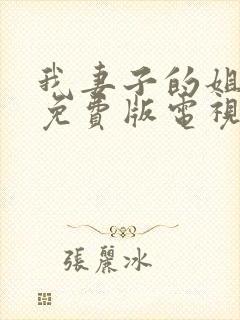 我妻子的姐
免費版電視
張麗冰